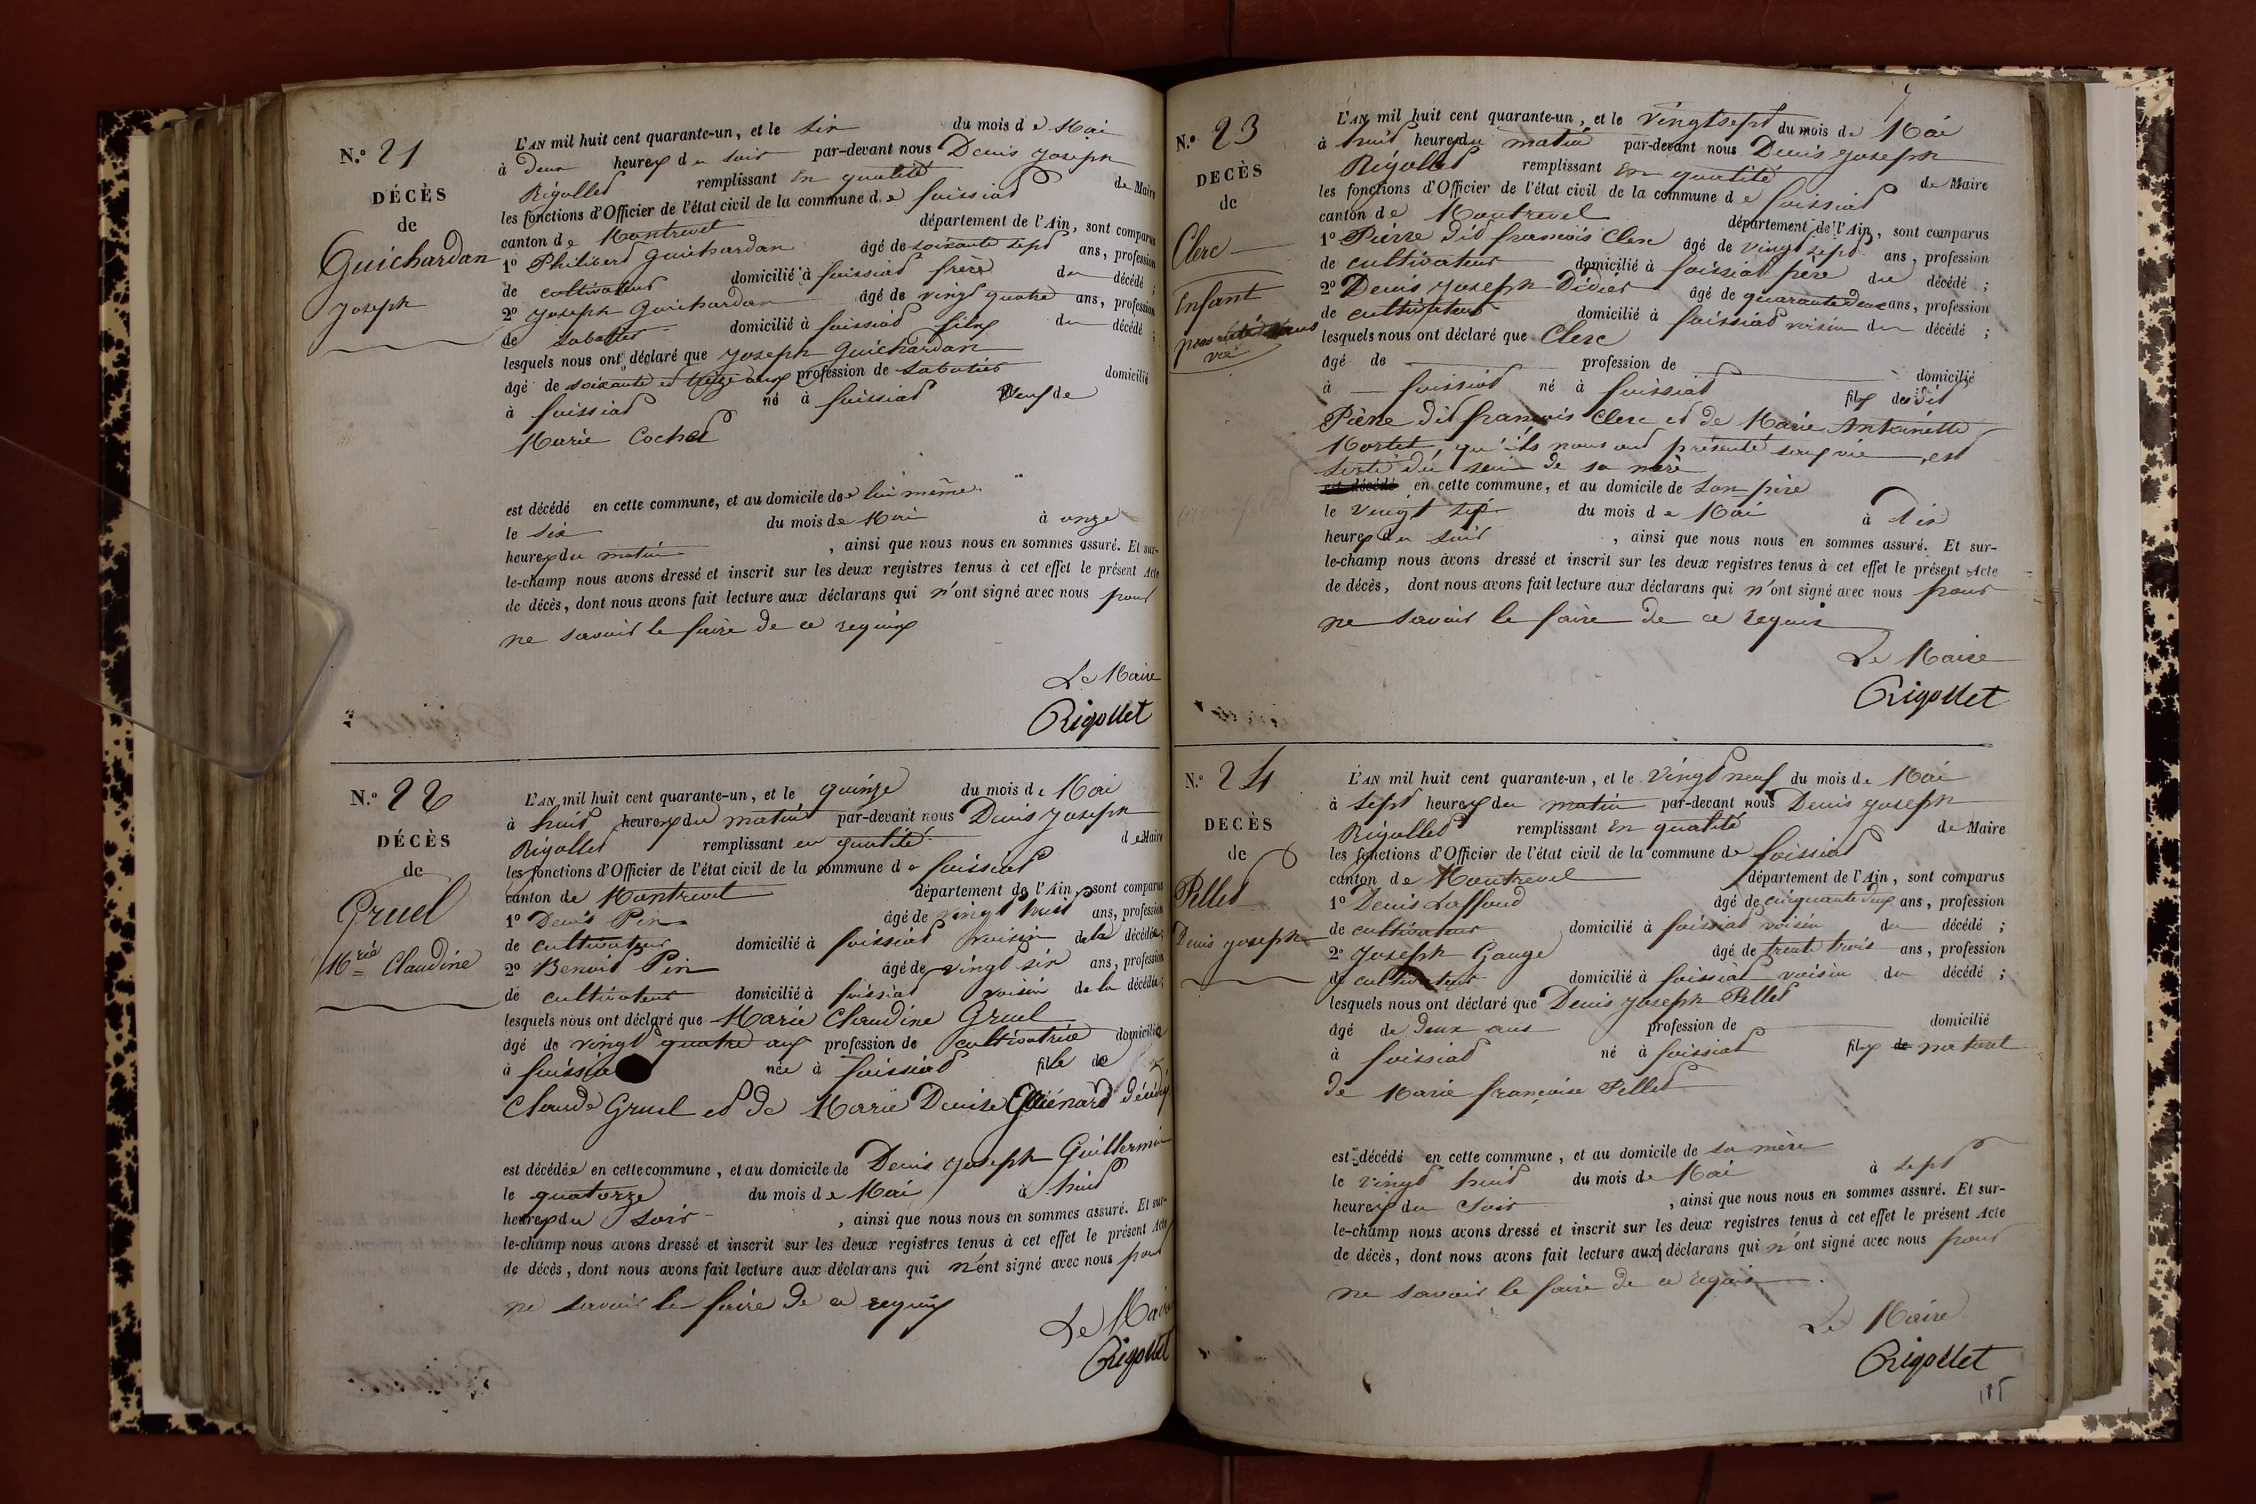 N.° 21
DÉCÈS
de
Guichardan
Joseph
L'AN mil huit cent quarante-un, et le six du mois de Mai
à deux heures du soir par-devant nous Denis Joseph
Rigollet remplissant en qualité de Maire
les fonctions d'Officier de l'état civil de la commune de foissiat
canton de Montrevel département de l'Ain, sont comparus
1° Philibert Guichardan âgé de soixante sept ans, profession
de cultivateur domicilié à foissiat frère du décédé ;
2° Joseph Guichardan âgé de vingt quatre ans, profession
de sabotier domicilié à foissiat fils du décédé ;
lesquels nous ont déclaré que Joseph Guichardan
âgé de soixante et treize ans profession de sabotier domicilié
à foissiat né à foissiat Veuf de
Marie Cochet
est décédé en cette commune, et au domicile de lui même
le six du mois de Mai à onze
heures du matin , ainsi que nous nous en sommes assuré. Et sur-
le-champ nous avons dressé et inscrit sur les deux registres tenus à cet effet le présent Acte
de décès, dont nous avons fait lecture aux déclarans qui n'ont signé avec nous pour
ne savoir le faire de ce requis
Le Maire
Rigollet
N.° 22
DÉCÈS
de
Gruel
Mrie Claudine
L'AN mil huit cent quarante-un, et le quinze du mois de Mai
à huit heures du matin par-devant nous Denis Joseph
Rigollet remplissant en qualité de Maire
les fonctions d'Officier de l'état civil de la commune de foissiat
canton de Montrevel département de l'Ain, sont comparus
1° Denis Pin âgé de vingt huit ans, profession
de cultivateur domicilié à foissiat voisin de la décédée ;
2° Benoit Pin âgé de vingt six ans, profession
de cultivateur domicilié à foissiat voisin de la décédée ;
lesquels nous ont déclaré que Marie Claudine Gruel
âgé de vingt quatre ans profession de cultivatrice domiciliée
à foissia née à foissiat fille de
Claude Gruel et de Marie Denise Guénard décédés
est décédée en cette commune, et au domicile de Denis Joseph Guillermin
le quatorze du mois de Mai à huit
heures du soir , ainsi que nous nous en sommes assuré. Et sur-
le-champ nous avons dressé et inscrit sur les deux registres tenus à cet effet le présent Acte
de décès, dont nous avons fait lecture aux déclarans qui n'ont signé avec nous pour
ne savoir le faire de ce requis
Le Maire
Rigollet
N.° 23
DECÈS
de
Clerc
Enfant
présenté sans
vie
L'AN mil huit cent quarante-un, et le vingt sept du mois de Mai
à huit heures du matin par-devant nous Denis Joseph
Rigollet remplissant en qualité de Maire
les fonctions d'Officier de l'état civil de la commune de foissiat
canton de Montrevel département de l'Ain, sont comparus
1° Pierre dit françois Clerc âgé de vingt sept ans, profession
de cultivateur domicilié à foissiat père du décédé ;
2° Denis Joseph Didier âgé de quarante deux ans, profession
de cultivateur domicilié à foissiat voisin du décédé ;
lesquels nous ont déclaré que Clerc
âgé de profession de domicilié
à foissiat né à foissiat fils dudit
Pierre dit françois Clerc et de Marie Antoinette
Mortet, qu'ils nous ont présenté sans vie, est
sorti du sein de sa mère
est décédé en cette commune, et au domicile de son père
le vingt six du mois de Mai à dix
heures du soir , ainsi que nous nous en sommes assuré. Et sur-
le-champ nous avons dressé et inscrit sur les deux registres tenus à cet effet le présent Acte
de décès, dont nous avons fait lecture aux déclarans qui n'ont signé avec nous pour
ne savoir le faire de ce requis
Le Maire
Rigollet
N.° 24
DECÈS
de
Pellet
Denis Joseph
L'AN mil huit cent quarante-un, et le vingt neuf du mois de Mai
à sept heures du matin par-devant nous Denis Joseph
Rigollet remplissant en qualité de Maire
les fonctions d'Officier de l'état civil de la commune de foissiat
canton de Montrevel département de l'Ain, sont comparus
1° Denis Laffond âgé de cinquante deux ans, profession
de cultivateur domicilié à foissiat voisin du décédé ;
2° Joseph Gauge âgé de trente trois ans, profession
de cultivateur domicilié à foissiat voisin du décédé ;
lesquels nous ont déclaré que Denis Joseph Pellet
âgé de deux ans profession de domicilié
à foissiat né à foissiat fils de naturel
de Marie françoise Pellet
est décédé en cette commune, et au domicile de sa mère
le vingt huit du mois de Mai à sept
heures du soir , ainsi que nous nous en sommes assuré. Et sur-
le-champ nous avons dressé et inscrit sur les deux registres tenus à cet effet le présent Acte
de décès, dont nous avons fait lecture aux déclarans qui n'ont signé avec nous pour
ne savoir le faire de ce requis
Le Maire
Rigollet